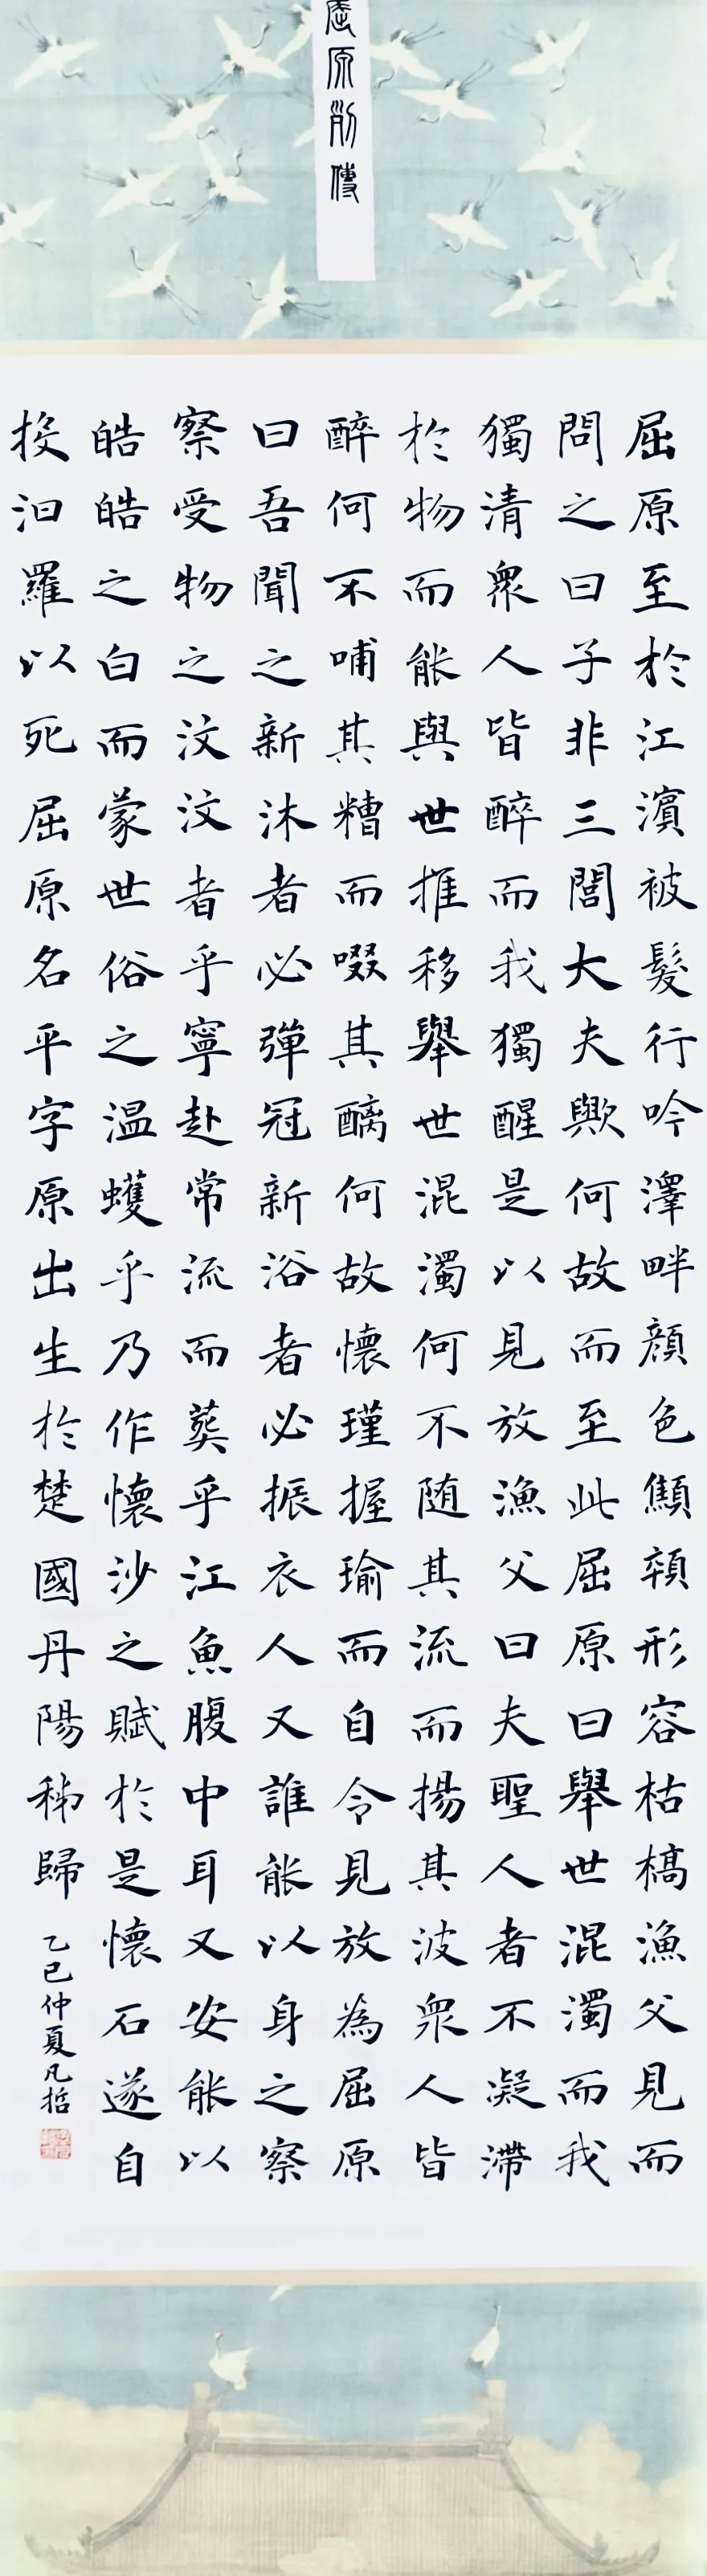 屈原列傳
屈原至於江濱被髮行吟澤畔顔色顦顇形容枯槁漁父見而
問之曰子非三閭大夫歟何故而至此屈原曰舉世混濁而我
獨清衆人皆醉而我獨醒是以見放漁父曰夫聖人者不凝滯
於物而能與世推移舉世混濁何不随其流而揚其波衆人皆
醉何不哺其糟而啜其醨何故懷瑾握瑜而自令見放為屈原
曰吾聞之新沐者必彈冠新浴者必振衣人又誰能以身之察
察受物之汶汶者乎寧赴常流而葬乎江魚腹中耳又安能以
皓皓之白而蒙世俗之温蠖乎乃作懷沙之賦於是懷石遂自
投汨羅以死屈原名平字原出生於楚國丹陽秭歸
乙巳仲夏凡哲